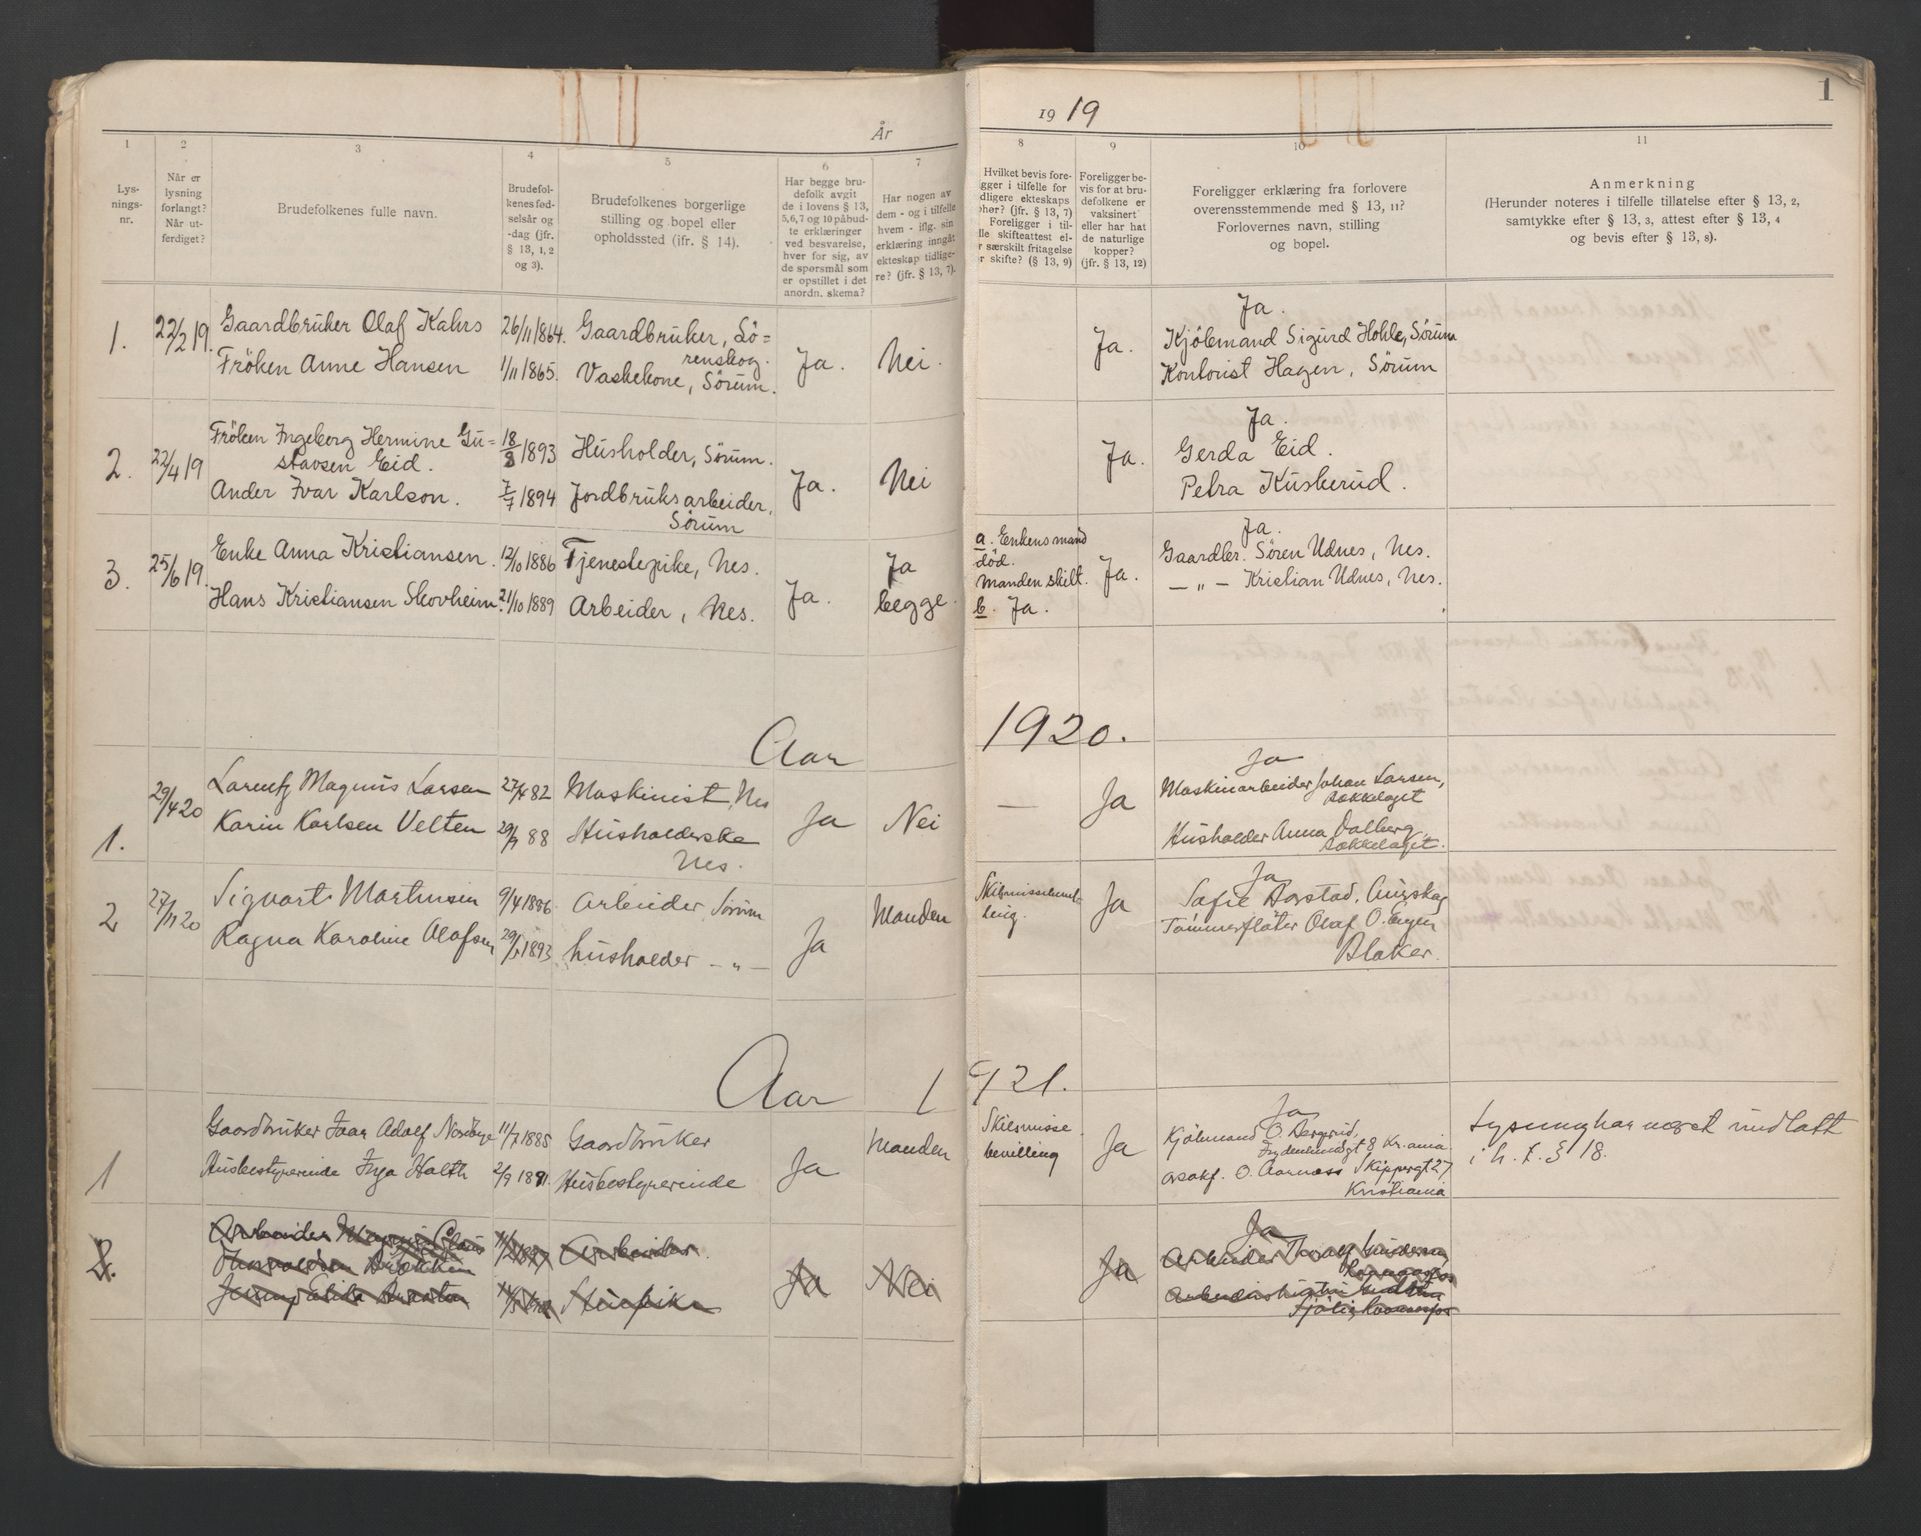 1
År 1919
1
Lys-
nings-
nr.
2
Når er
lysning
forlangt?
Når ut-
ferdiget?
3
Brudefolkenes fulle navn.
4
Brudefol-
kenes fød-
selsår og
-dag (jfr.
§ 13, 1, 2
og 3).
5
Brudefolkenes borgerlige
stilling og bopel eller
opholdssted (ifr. § 14).
6
Har begge bru-
defolk avgit
de i lovens § 13,
5,6,7 og 10 påbud-
te erklæringer
ved besvarelse,
hver for sig, av
de spørsmål som
er opstillet i det
anordn. skema?
7
Har nogen av
dem - og i tilfelle
hvem - iflg. sin
erklæring inngått
ekteskap tidlige-
re? (jfr. § 13, 7).
8
Hvilket bevis fore-
gger i tilfelle for
dligere ekteskaps
phør? (jfr. § 13, 7)
Foreligger i til-
lle skifteattest el-
r særskilt fritagelse
r skifte? (§ 13, 9)
9
Foreligger be-
vis for at bru-
defolkene er
vaksinert
eller har hat
de naturlige
kopper?
(jfr. § 13, 12)
10
Foreligger erklæring fra forlovere
overensstemmende med § 13, 11?
Forlovernes navn, stilling
og bopel.
11
Anmerkning
(Herunder noteres i tilfelle tillatelse efter § 13, 2,
samtykke efter § 13, 3, attest efter § 13, 4
og bevis efter § 13, 8).
1.
22/2 19.
Gaardbruker Olaf Kahrs
Fröken Anne Hansen
26/11 1864.
1/11 1865.
Gaardbruker, Sö=
renskog.
Vaskekone, Sørum.
Ja.
Nei.
Ja.
Ja.
Kjölemand Sigurd Hohle, Sørum
Kontorist Hagen, Sørum
2.
22/4 19
Fröken Ingeborg Hermine Gu=
stavsen Eid.
Ander Ivar Karlson.
18/8 1893
7/7 1894
Husholder, Sørum.
Jordbruksarbeider,
Sørum
Ja.
Nei
Ja.
Ja.
Gerda Eid.
Petra Kuskerud.
3.
25/6 19.
Enke Anna Kristiansen.
Hans Kristiansen Skovheim.
12/10 1886
21/10 1889
Tjenestepike, Nes.
Arbeider, Nes.
Ja.
Ja
begge.
a. Enkens mand
död.
Manden skilt.
b. Ja.
Ja.
Ja.
Gaardbr. Søren Udnes, Nes.
— „ — Kristian Udnes, Nes.
Aar 1920.
1.
29/4 20
Larentz Magnus Larsen
Karin Karlsen Velten
27/4 82
88
Maskinist, Nes
Husholderske
Nes.
Ja
Nei
—
Ja
Ja
Maskinarbeider Johan Larsen,
Bækkelaget
Husholder Anna Dalberg
Bækkelaget.
2
27/11 20
Sigvart Martinsen
Ragna Karoline Olafsen
9/4 1886
1893
Arbeider, Sørum
husholder — „ —
Ja
Manden
Ja
Ja
Safie Aurskog
Tömmerfløter Olaf O.
Blaker.
Aar 1921.
1
Gaardbruker Adolf
Husbestyrerinde Inga Holth
11/7 1885
2/9
Gaardbruker
Husbestyrerinde
Ja
Manden
Skilsmisse
bevilling
Ja
Ja
Kjöbmand O. Bergerud,
8 Kr.ania
O. Aarnæss Skippergt 27,
Kristiania
Lysning har været undlatt
i h. t. § 18.
2.
Arbeider
Arbeider
Ja
Nei
Ja
Ja
Arbeider